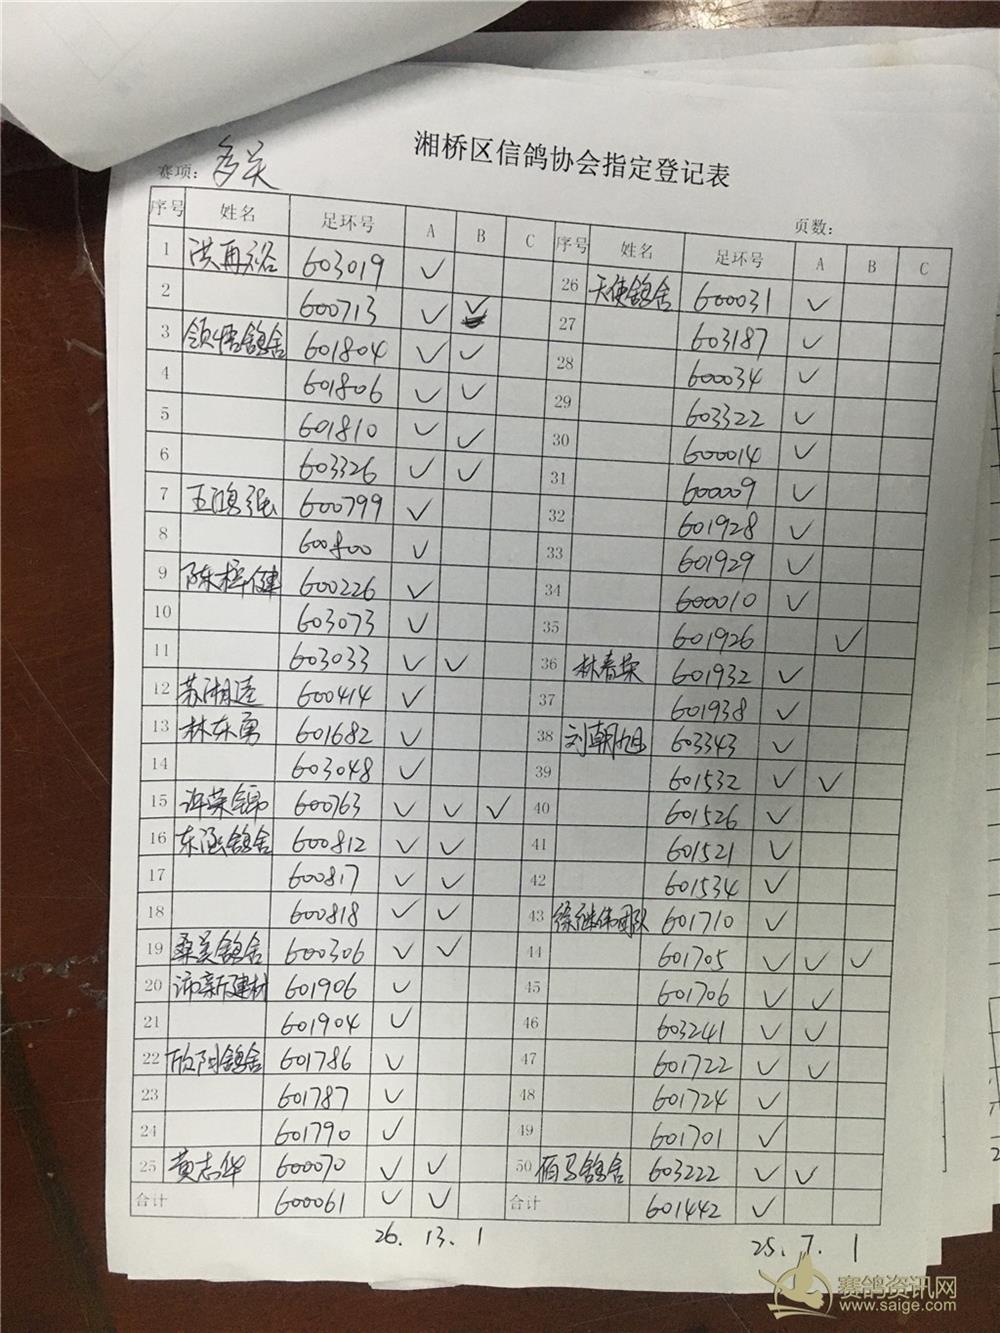 湘桥区信鸽协会指定登记表
赛项: 多关
页数:
序号 姓名 足环号 A B C
1 洪再裕 603019 ✓
2 600713 ✓ ✓
3 领悟鸽舍 601804 ✓ ✓
4 601806 ✓ ✓
5 601810 ✓ ✓
6 603326 ✓ ✓
7 王鸿强 600799 ✓
8 600800 ✓
9 陈梓健 600226 ✓
10 603073 ✓
11 603033 ✓ ✓
12 苏湘逵 600414 ✓
13 林东勇 601682 ✓
14 603048 ✓
15 许荣锦 600763 ✓ ✓ ✓
16 东涵鸽舍 600812 ✓ ✓
17 600817 ✓ ✓
18 600818 ✓ ✓
19 桑美鸽舍 600306 ✓ ✓
20 沛新建材 601906 ✓
21 601904 ✓
22 欣阳鸽舍 601786 ✓
23 601787 ✓
24 601790 ✓
25 黄志华 600070 ✓ ✓
合计 600061 ✓ ✓
26. 13. 1
序号 姓名 足环号 A B C
26 天使鸽舍 600031 ✓
27 603187 ✓
28 600034 ✓
29 603322 ✓
30 600014 ✓
31 60009 ✓
32 601928 ✓
33 601929 ✓
34 600010 ✓
35 601926 ✓
36 林春荣 601932 ✓
37 601938 ✓
38 刘朝旭 603343 ✓
39 601532 ✓ ✓
40 601526 ✓
41 601521 ✓
42 601534 ✓
43 徐继伟团队 601710 ✓
44 601705 ✓ ✓ ✓
45 601706 ✓ ✓
46 603241 ✓ ✓
47 601722 ✓ ✓
48 601724 ✓
49 601701 ✓
50 伯马鸽舍 603222 ✓ ✓
合计 601442 ✓
25. 7. 1
赛鸽资讯网
www.saige.com